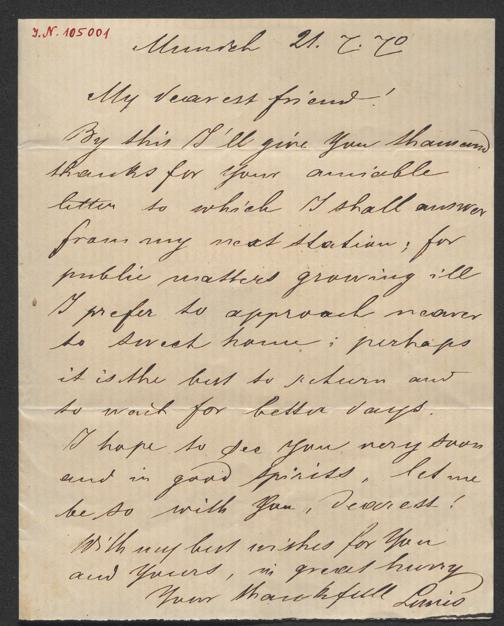 J.N. 105001
Munich 21. 7. 70
My dearest friend!
By this I'll give You thousand
thanks for Your amiable
letter to which I shall answer
from my next station; for
public matters growing ill
I prefer to approach nearer
to sweet home; perhaps
it is the best to return and
to wait for better days.
I hope to see You very soon
and in good spirits, let me
be so with You, Dearest!
With my best wishes for You
and Yours, in great hurry
Your thankfull Louis